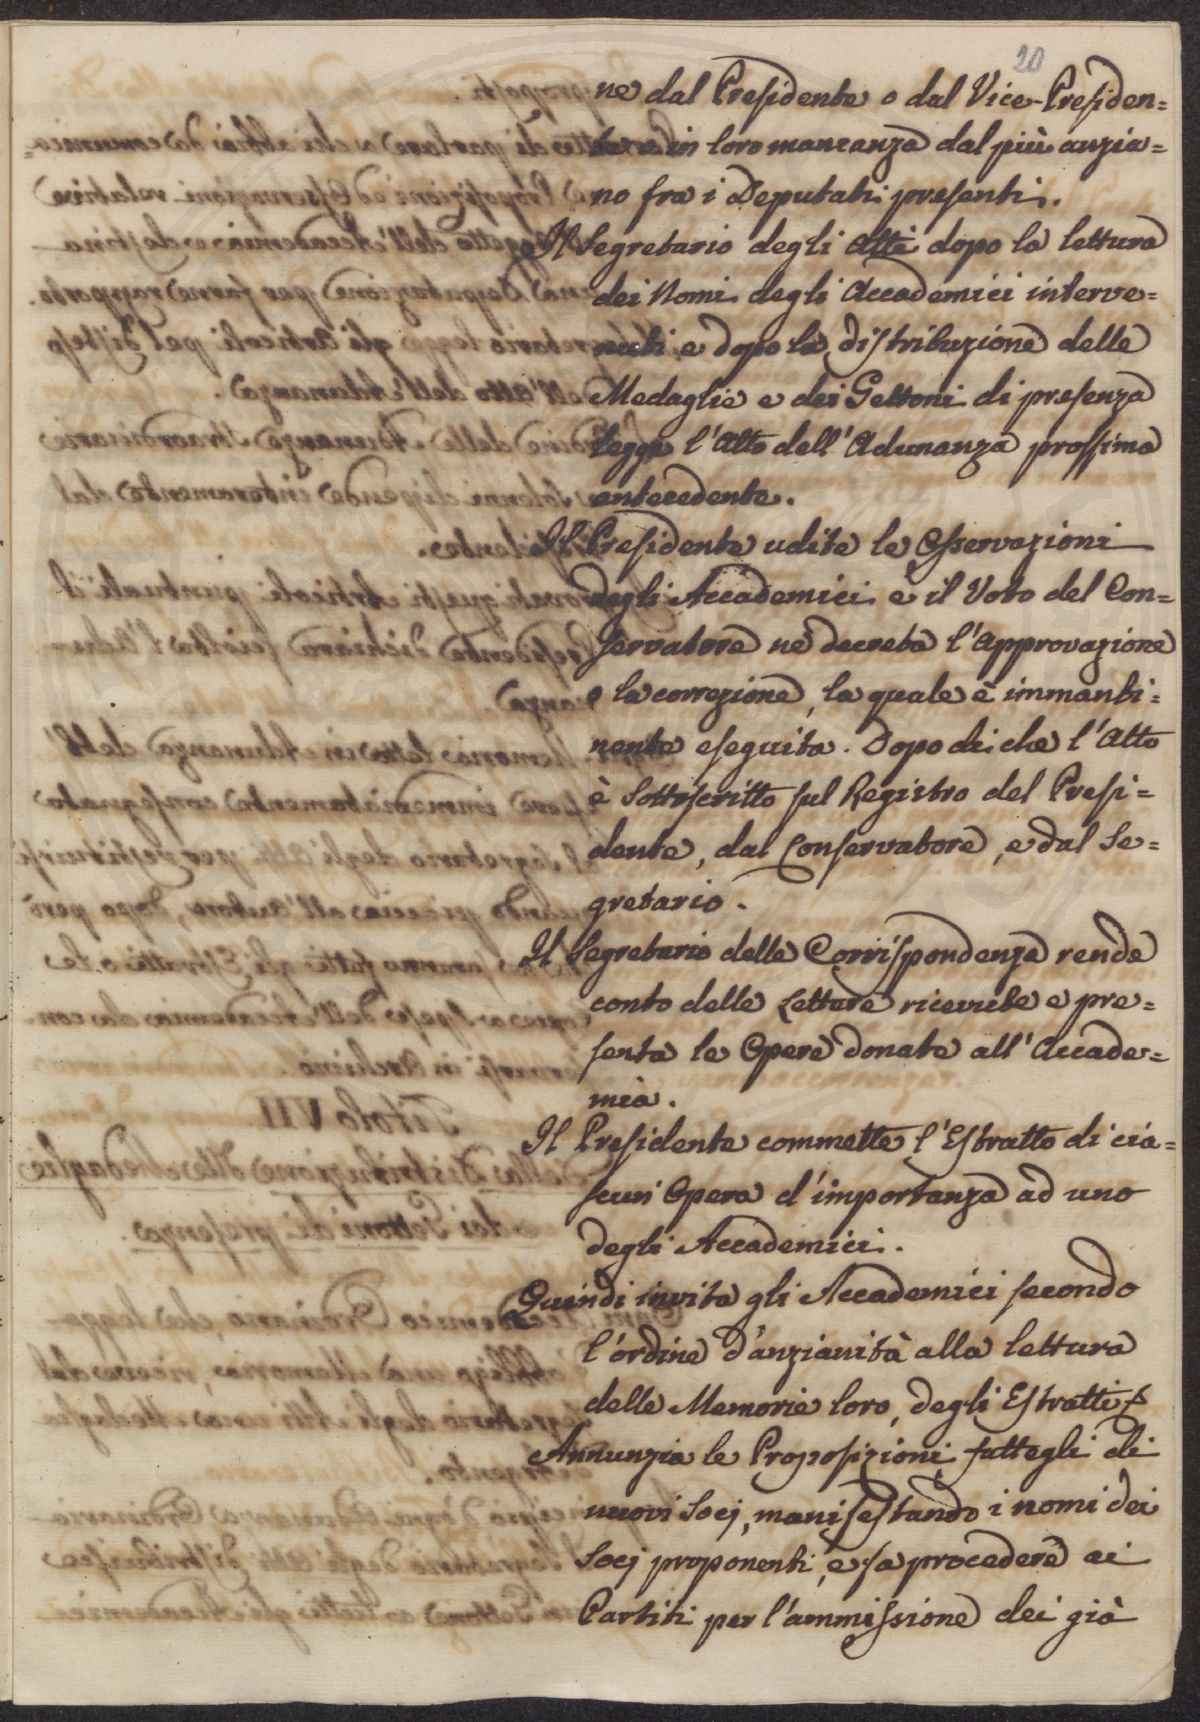 20
ne dal Presidente o dal Vice-Presiden=
te e in loro mancanza dal più anzia=
no fra i Deputati presenti.
Il Segretario degli Atti dopo la lettura
dei Nomi degli Accademici interve=
nuti e dopo la distribuzione delle
Medaglie e dei Gettoni di presenza
legge l'Atto dell'Adunanza prossima
antecedente.
Il Presidente udite le Osservazioni
degli Accademici e il Voto del Con=
servatore ne decreta l'Approvazione
o la correzione, la quale è immanti=
nente eseguita. Dopo di che l'Atto
è Sottoscritto sul Registro del Presi=
dente, dal Conservatore, e dal Se=
gretario.
Il Segretario delle Corrispondenza rende
conto delle Lettere ricevute e pre=
senta le Opere donate all'Accade=
mia.
Il Presidente commette l'Estratto di cia=
scun' Opera d'importanza ad uno
degli Accademici.
Quindi invita gli Accademici secondo
l'ordine d'anzianità alla lettura
delle Memorie loro, degli Estratti
Annunzia le Proposizioni fattegli di
nuovi Socj, manifestando i nomi dei
Socj proponenti, e fa procedere ai
Partiti per l'ammissione dei già